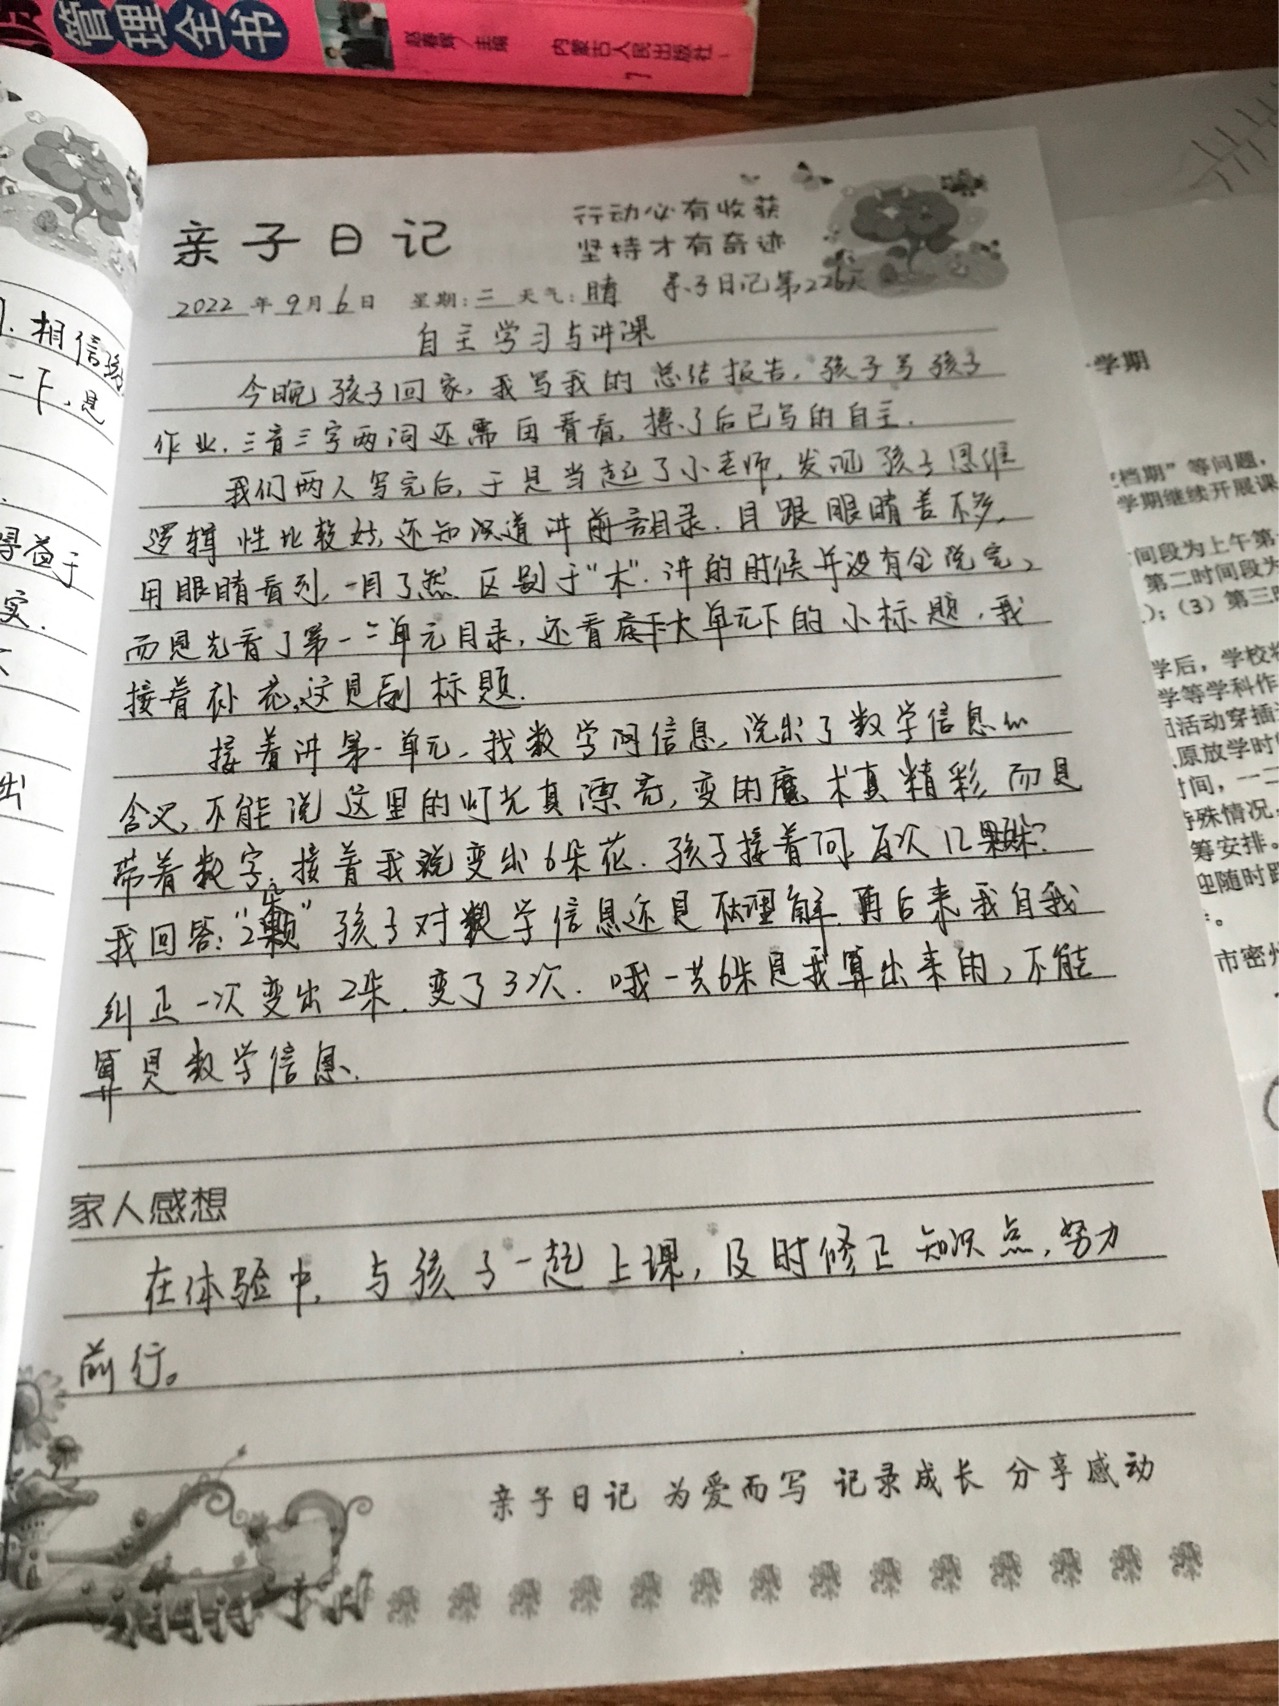 管理全书
赵春辉/主编
内蒙古人民出版社
亲子日记
行动必有收获
坚持才有奇迹
2022年9月6日 星期:二 天气:晴 亲子日记第226天
自主学习与讲课
今晚孩子回家,我写我的总结报告,孩子写孩子
作业,三音三字两词还需用看看,擦了后已写的自主.
我们两人写完后,于是当起了小老师,发现孩子思维
逻辑性比较好,还知识道讲前言目录.目跟眼睛差不多,
用眼睛看到,一目了然 区别于“木”.讲的时候并没有全说完,
而是先看了第一二单元目录,还看底下大单元下的小标题,我
接着补充,这是副标题.
接着讲第一单元,找数学问信息,说出了数学信息的
含义,不能说这里的灯光真漂亮,变的魔术真精彩,而是
带着数字,接着我说变出6朵花.孩子接着问,每次12颗?
我回答:“2朵”孩子对数学信息还是不太理解.再后来我自我
纠正一次变出2朵.变了3次.哦一共6朵是我算出来的,不能
算是数学信息.
家人感想
在体验中,与孩子一起上课,及时修正知识点,努力
前行。
亲子日记 为爱而写 记录成长 分享感动
相信孩
一下,是
得益于
实.
出
学期
空档期”等问题,
学期继续开展课
时间段为上午第一
第二时间段为
);(3)第三时
学后,学校将
学等学科作
团活动穿插
原放学时
时间,一二
特殊情况,
筹安排。
迎随时
市密州